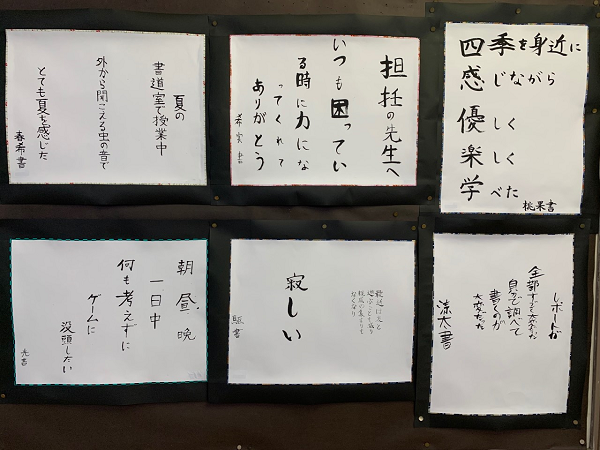 夏の
書道室で授業中
外から聞こえる虫の音で
とても夏を感じた
春希書
担任の先生へ
いつも困ってい
る時に力にな
ってくれて
ありがとう
希実書
四季を身近に
感じながら
優しく
楽しく
学べた
桃果書
朝昼晩
一日中
何も考えずに
ゲームに
没頭したい
光書
寂しい
最近は友と
遊ぶことも減り
なくなり
書
レポートが
全部すごく大変だ
自分で調べて
書くのが
大変だった
涼太書